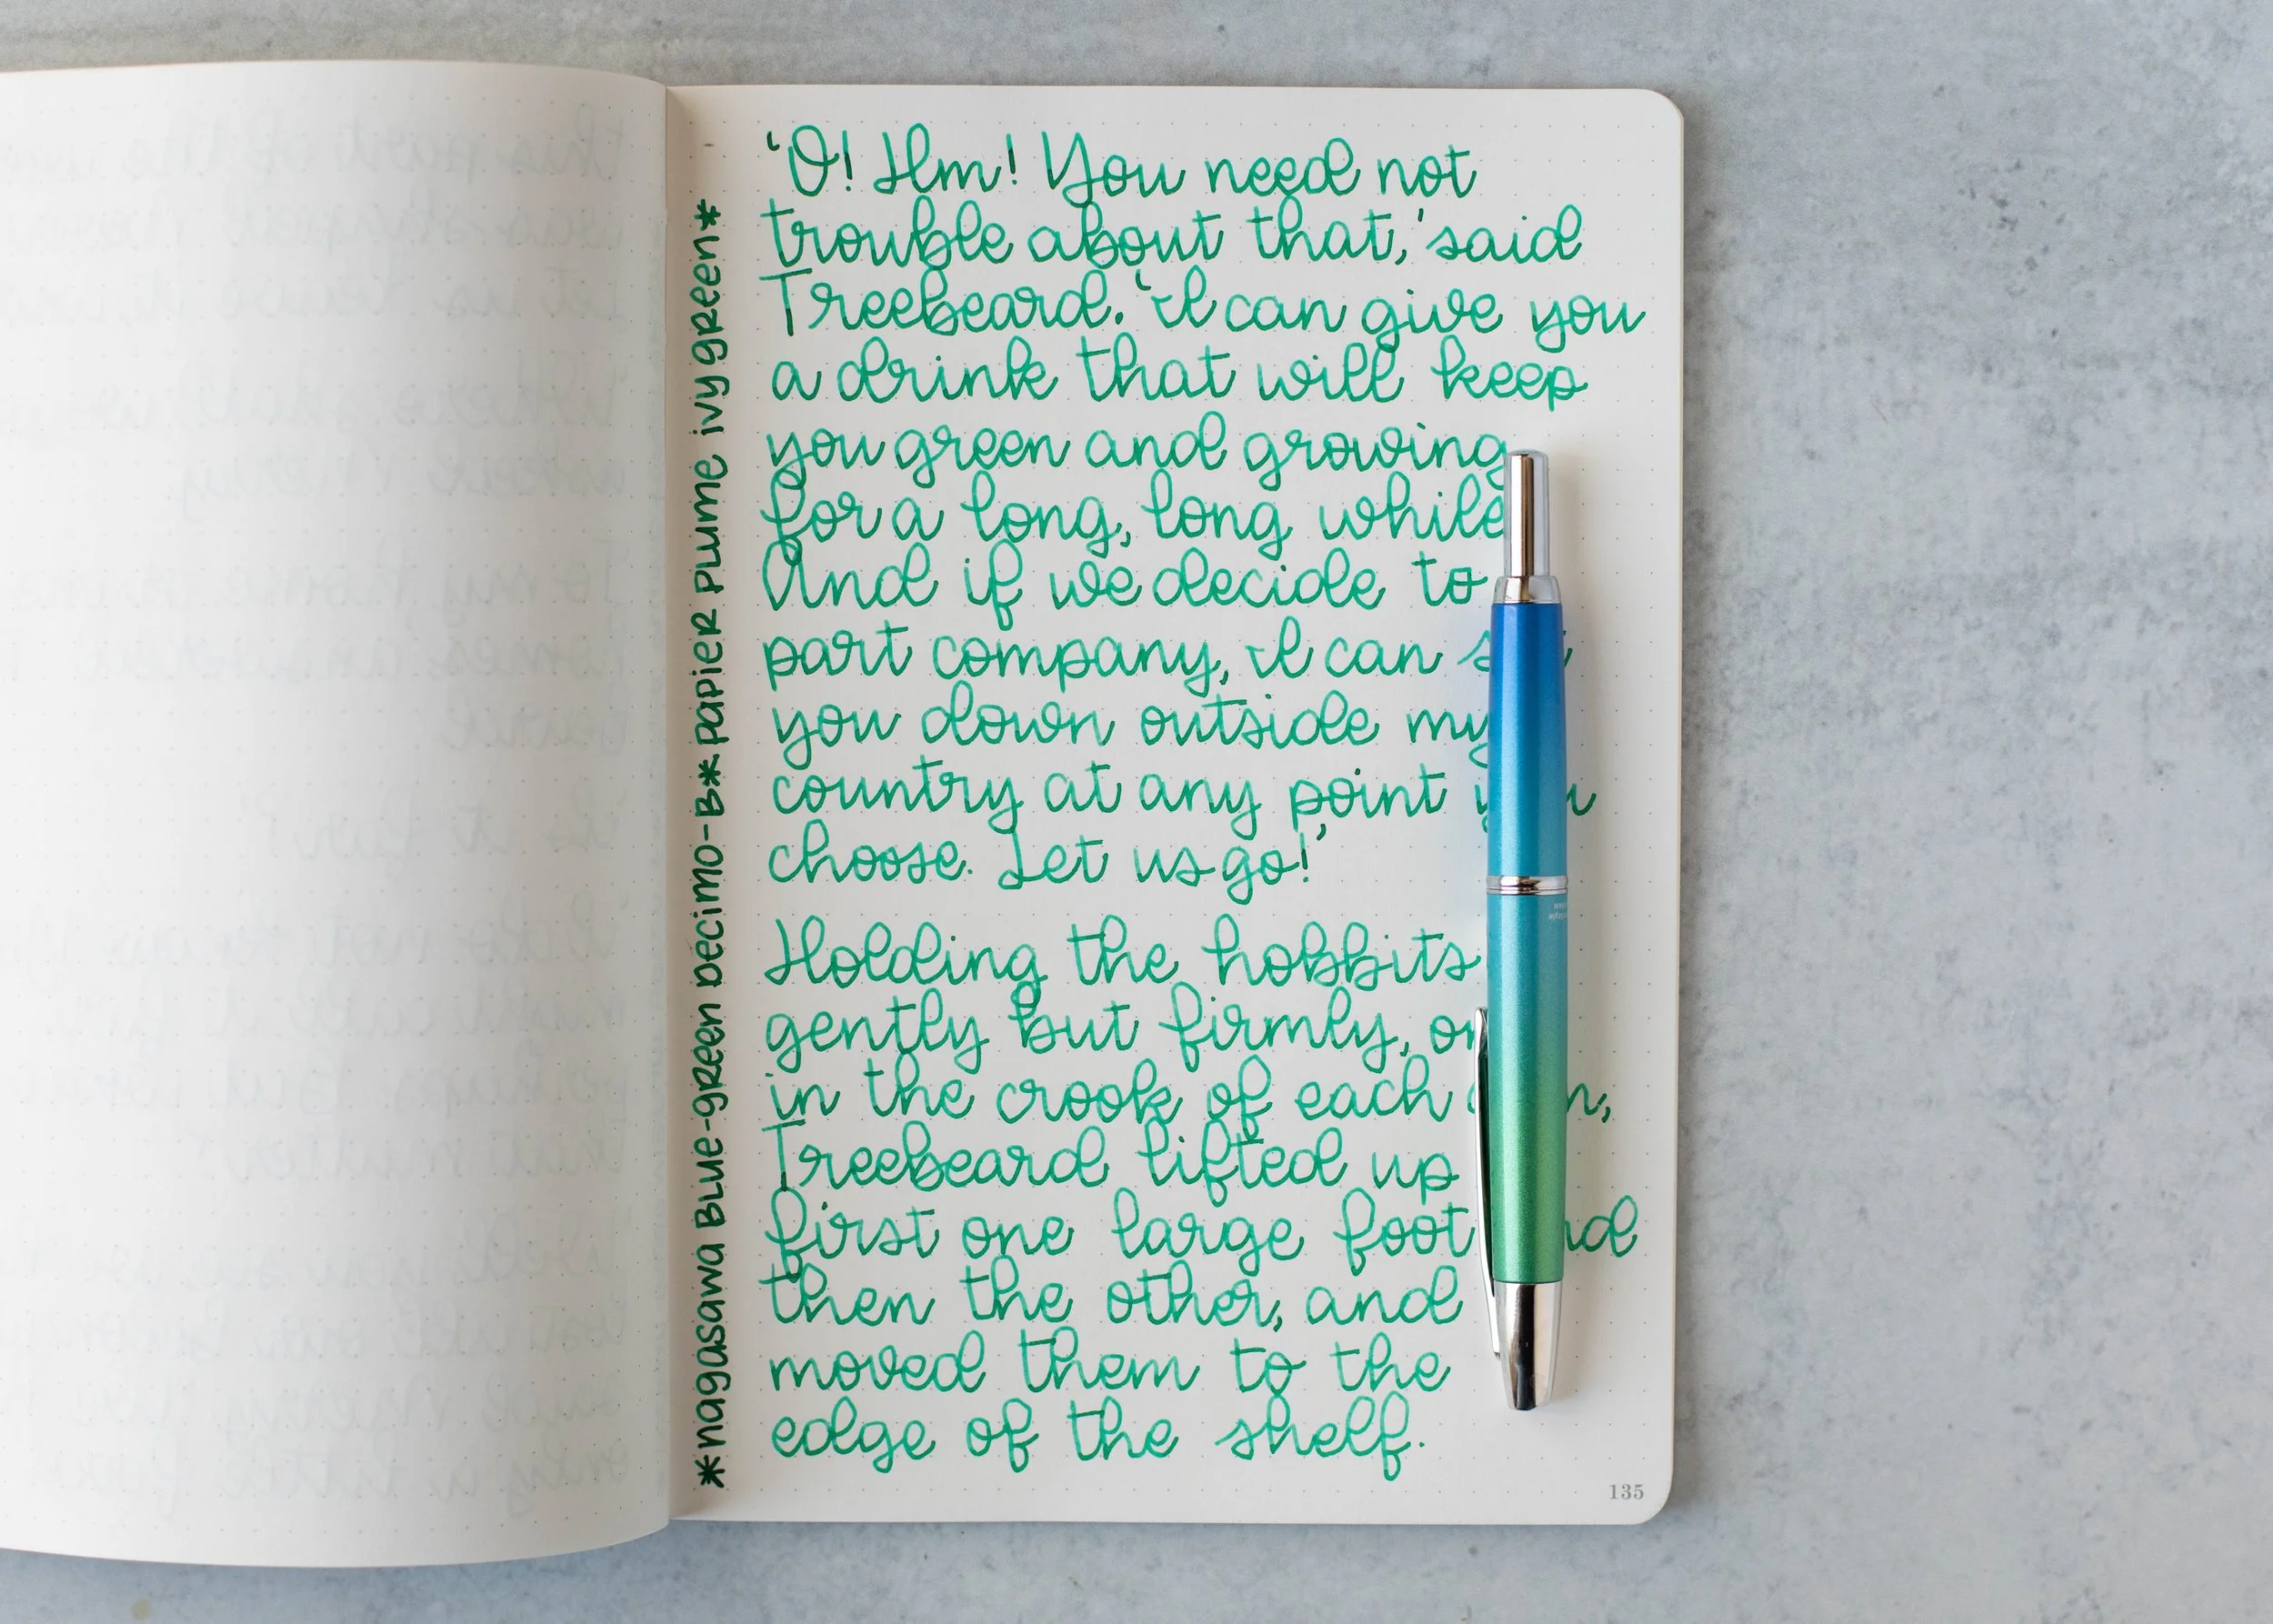 'O! Hm! You need not
trouble about that,' said
Treebeard. 'I can give you
a drink that will keep
you green and growing
for a long, long while
And if we decide to
part company, I can
you down outside my
country at any point
choose. Let us go!'
Holding the hobbits
gently but firmly,
in the crook of each
Treebeard lifted up
first one large foot
then the other, and
moved them to the
edge of the shelf.
*nagasawa Blue-green Decimo-B*Papier Plume ivy green*
135